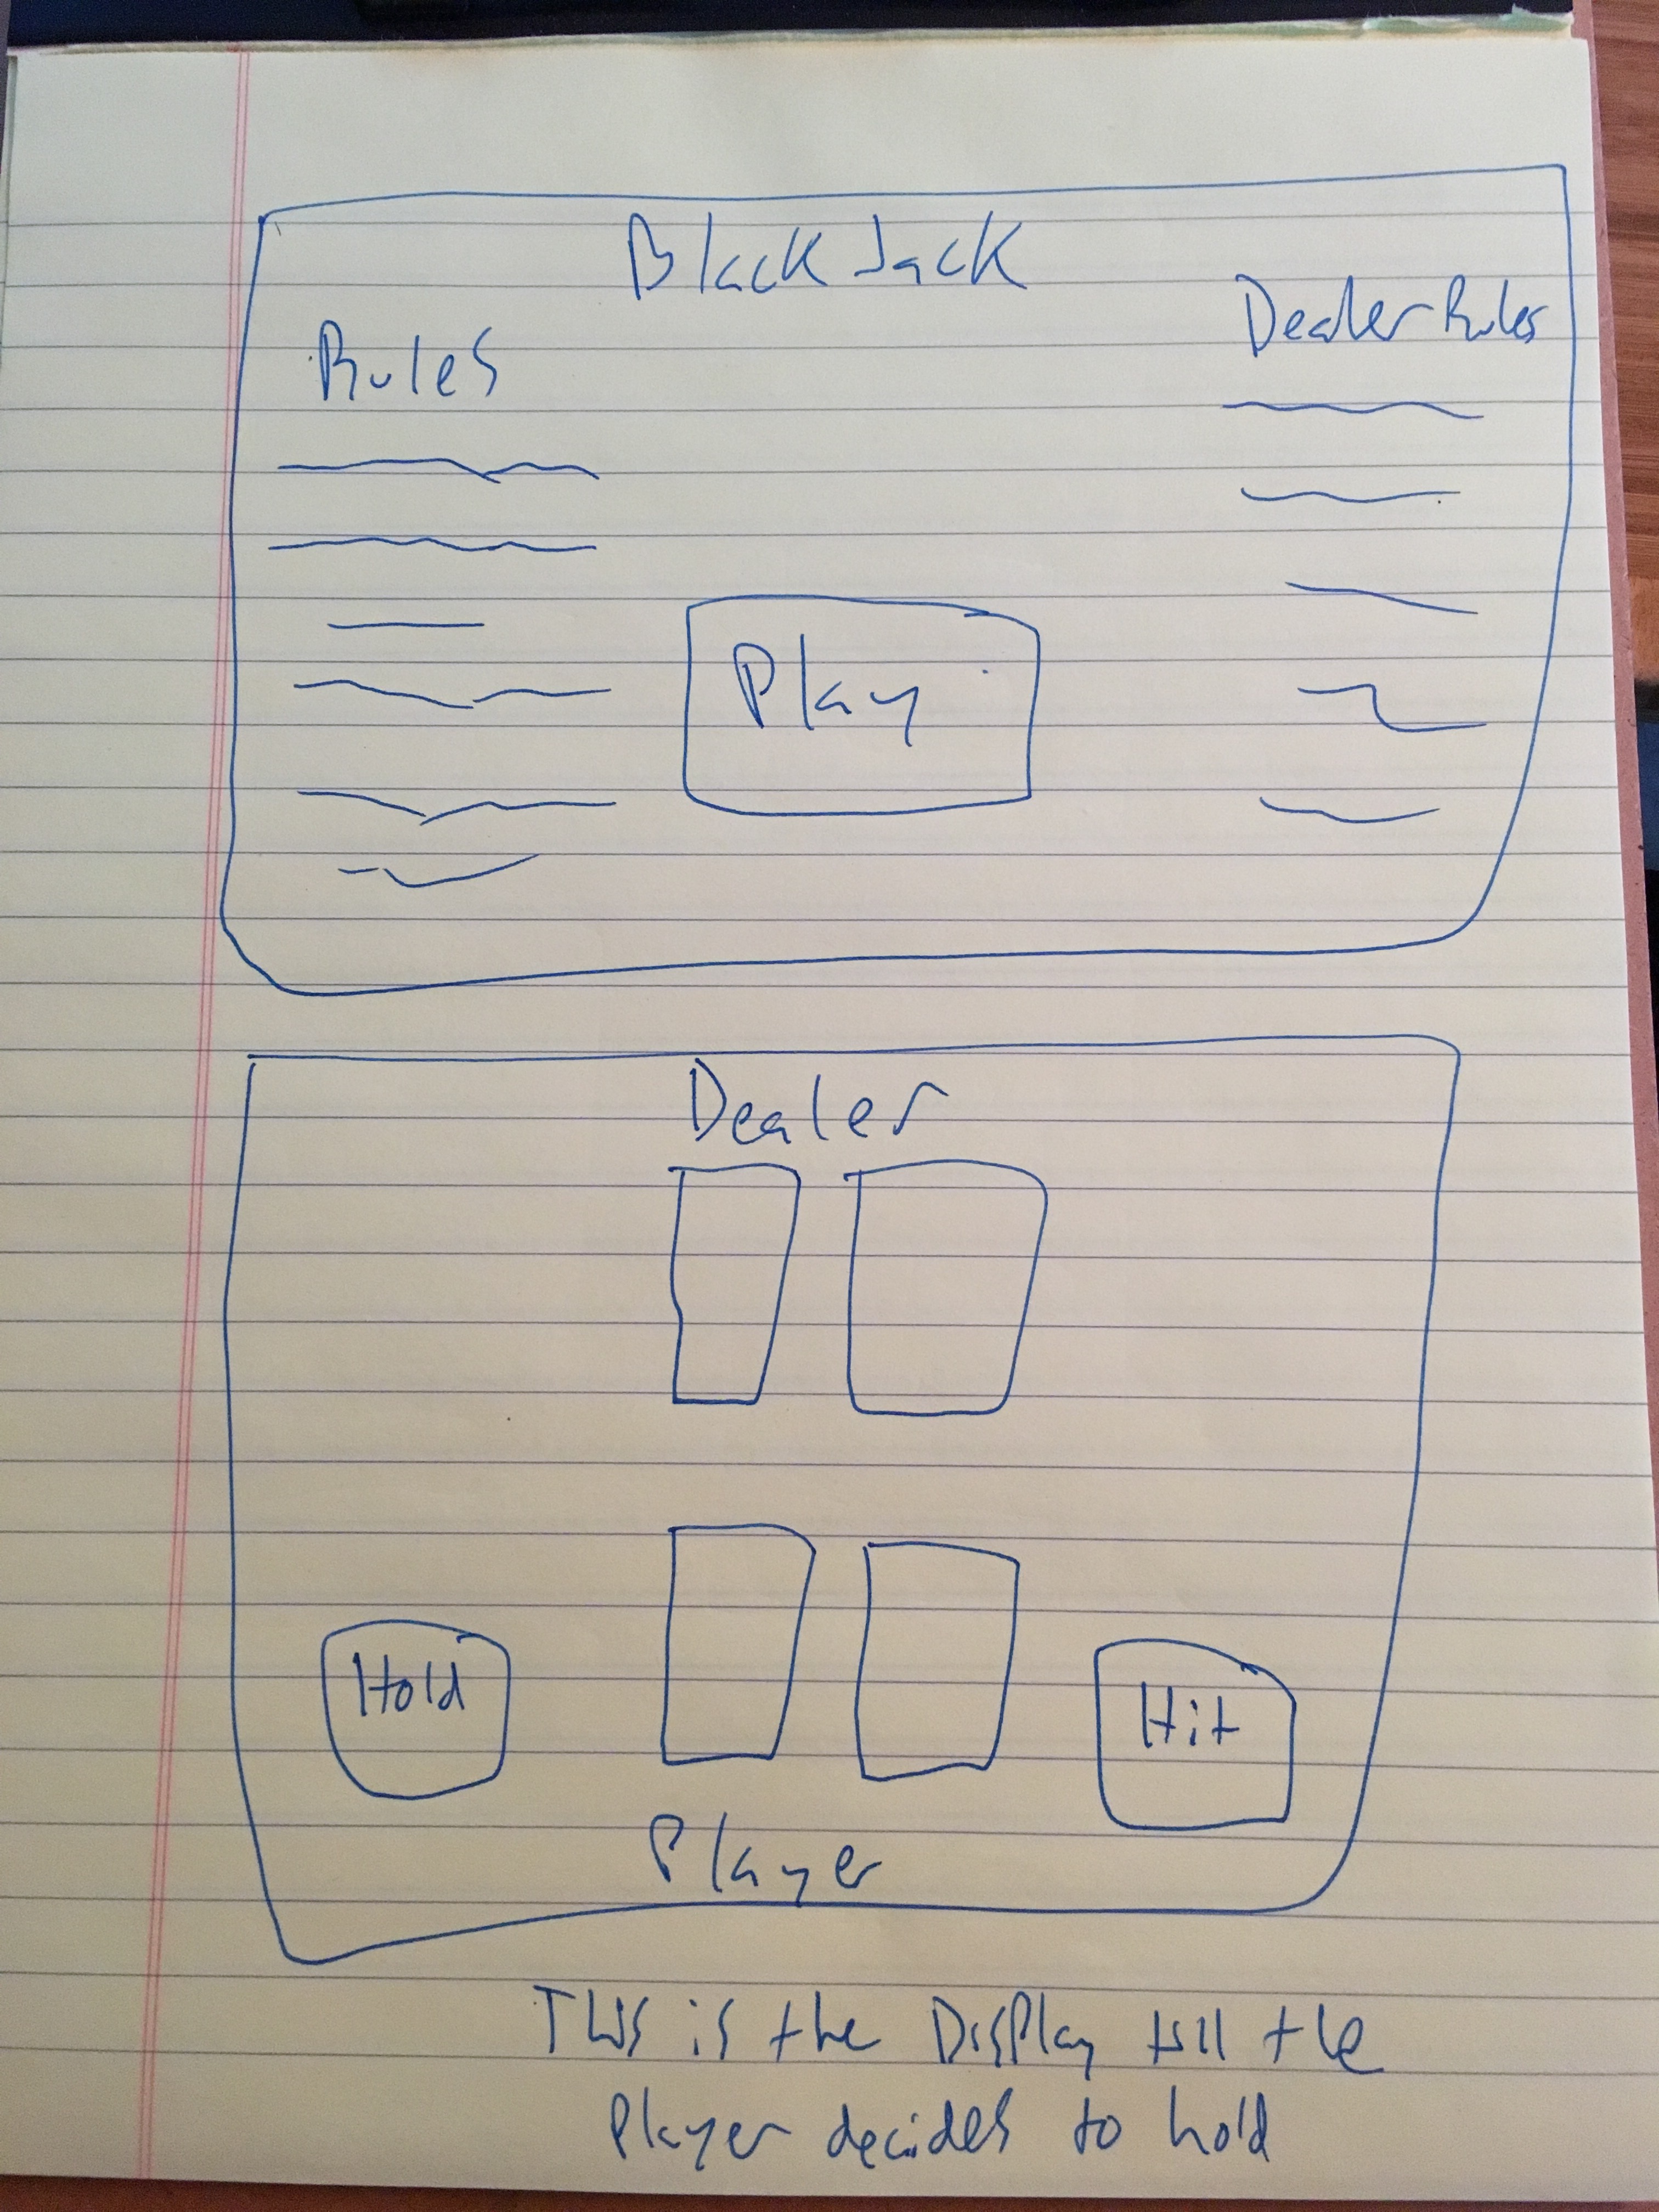 Black Jack
Rules
Dealer Rules
Play
Dealer
Hold
Hit
Player
This is the Display till the
Player decides to hold